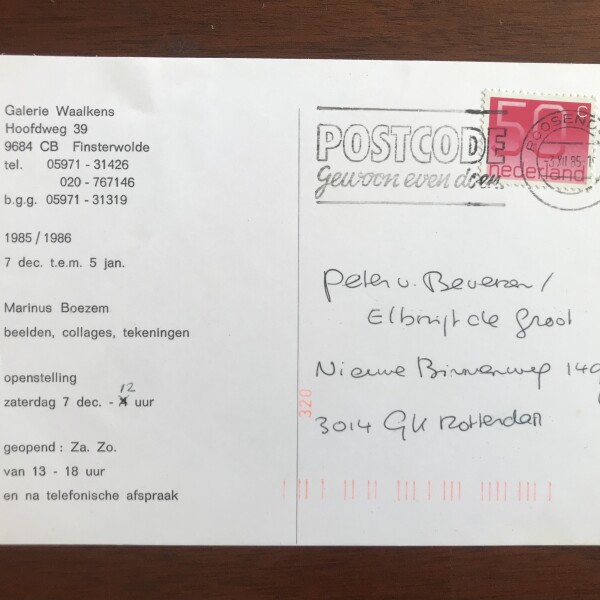 Galerie Waalkens
Hoofdweg 39
9684 CB Finsterwolde
tel. 05971 - 31426
020 - 767146
b.g.g. 05971 - 31319
1985 / 1986
7 dec. t.e.m. 5 jan.
Marinus Boezem
beelden, collages, tekeningen
openstelling
12
zaterdag 7 dec. - uur
geopend : Za. Zo.
van 13 - 18 uur
en na telefonische afspraak
POSTCODE
Gewoon even doen.
50 c
nederland
ROOSEN
-3.XII.85
Peter v. Beveren /
Elbrigt de Groot
Nieuwe Binnenweg 149
3014 GK Rotterdam
320